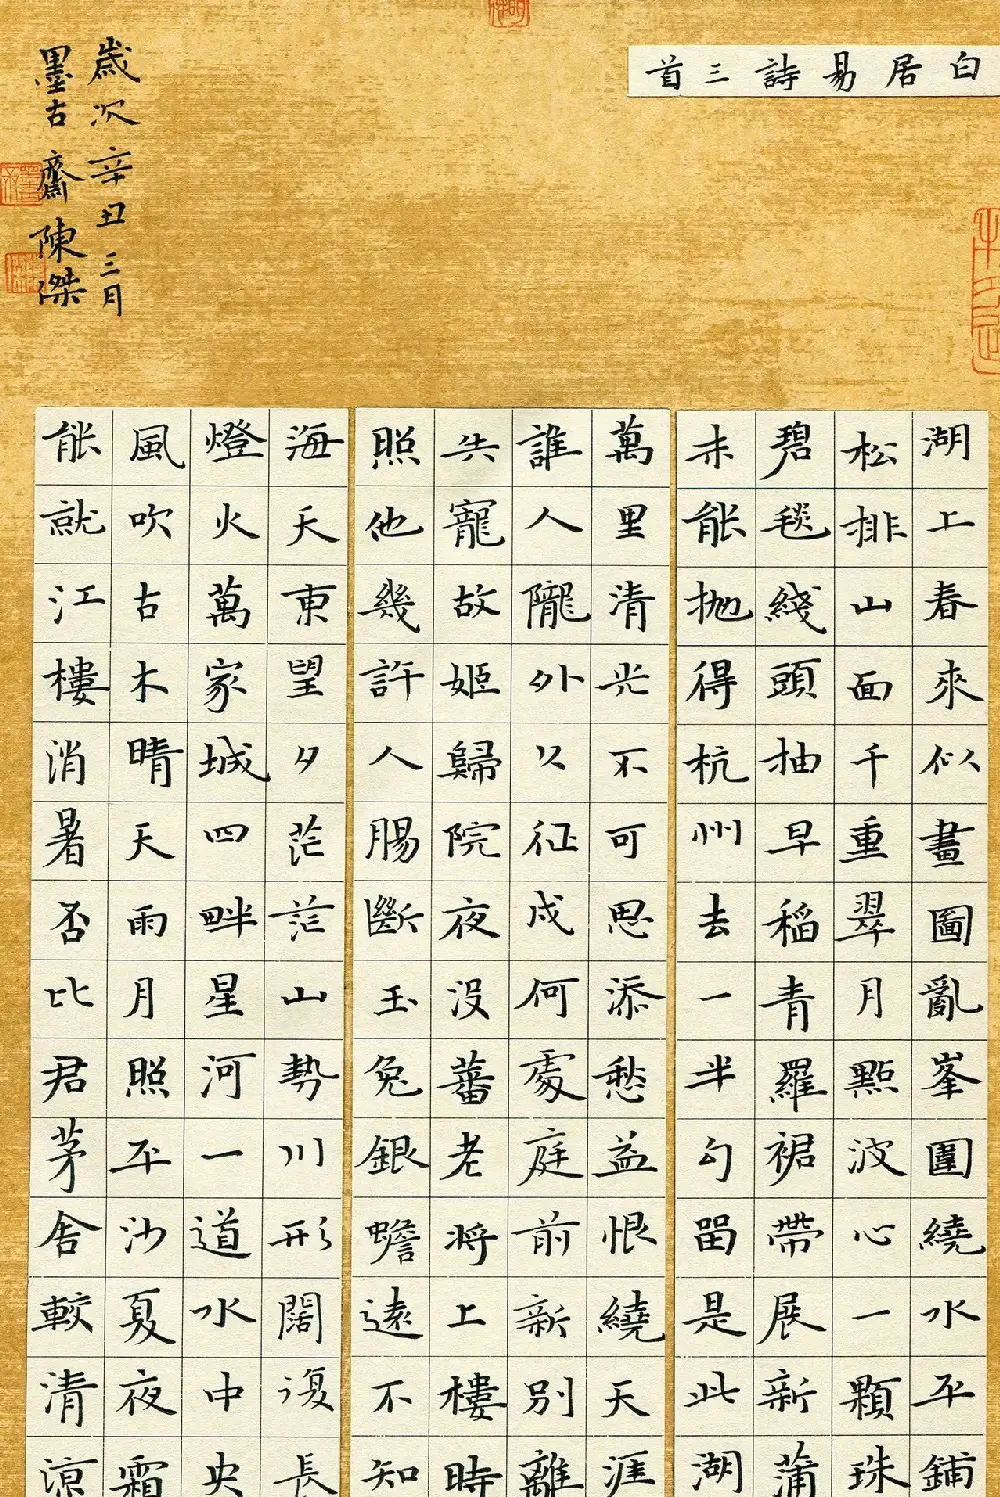 白居易詩三首
湖上春來似畫圖亂峯圍繞水平鋪
松排山面千重翠月點波心一顆珠
碧毯綫頭抽早稻青羅裙帶展新蒲
未能抛得杭州去一半勾留是此湖
萬里清光不可思添愁益恨繞天涯
誰人隴外久征戍何處庭前新別離
失寵故姬歸院夜沒蕃老將上樓時
照他幾許人腸斷玉兔銀蟾遠不知
海天東望夕茫茫山勢川形闊復長
燈火萬家城四畔星河一道水中央
風吹古木晴天雨月照平沙夏夜霜
能就江樓消暑否比君茅舍較清涼
歲次辛丑三月
墨古齋陳傑